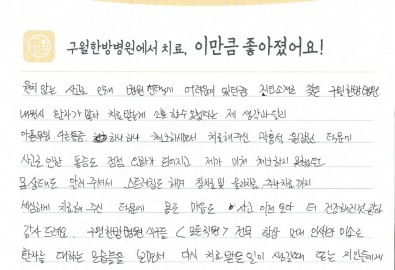 구월한방병원에서 치료, 이만큼 좋아졌어요!
원치 않는 사고로 인해 병원 선택에 어려움이 있던중 지인소개로 찾은 구월한방병원
내원시 환자가 많아 치료받는게 소홀할수 있겠다는 제 생각과 달리
아픈부위 하나하나 체크하시면서 치료해주신 원장님 덕분에
사고로 인한 통증도 점점 되어지고 제가 미처 체크하지 못했던
몸상태도 알려 주셔서 스트레칭도 해주 침치료 및 물리치료, 추나치료 까지
세심하게 치료해 주신 덕분에 몸도 마음도 사고 이전 보다 더 건강해진것 같아
감사 드려요. 구월한방병원 식구들 (모든직원) 전부 항상 먼저 인사와 미소로
환자를 대하는 모습들을 보면서 다시 치료 받을 일이 생길때 또는 지인들에게